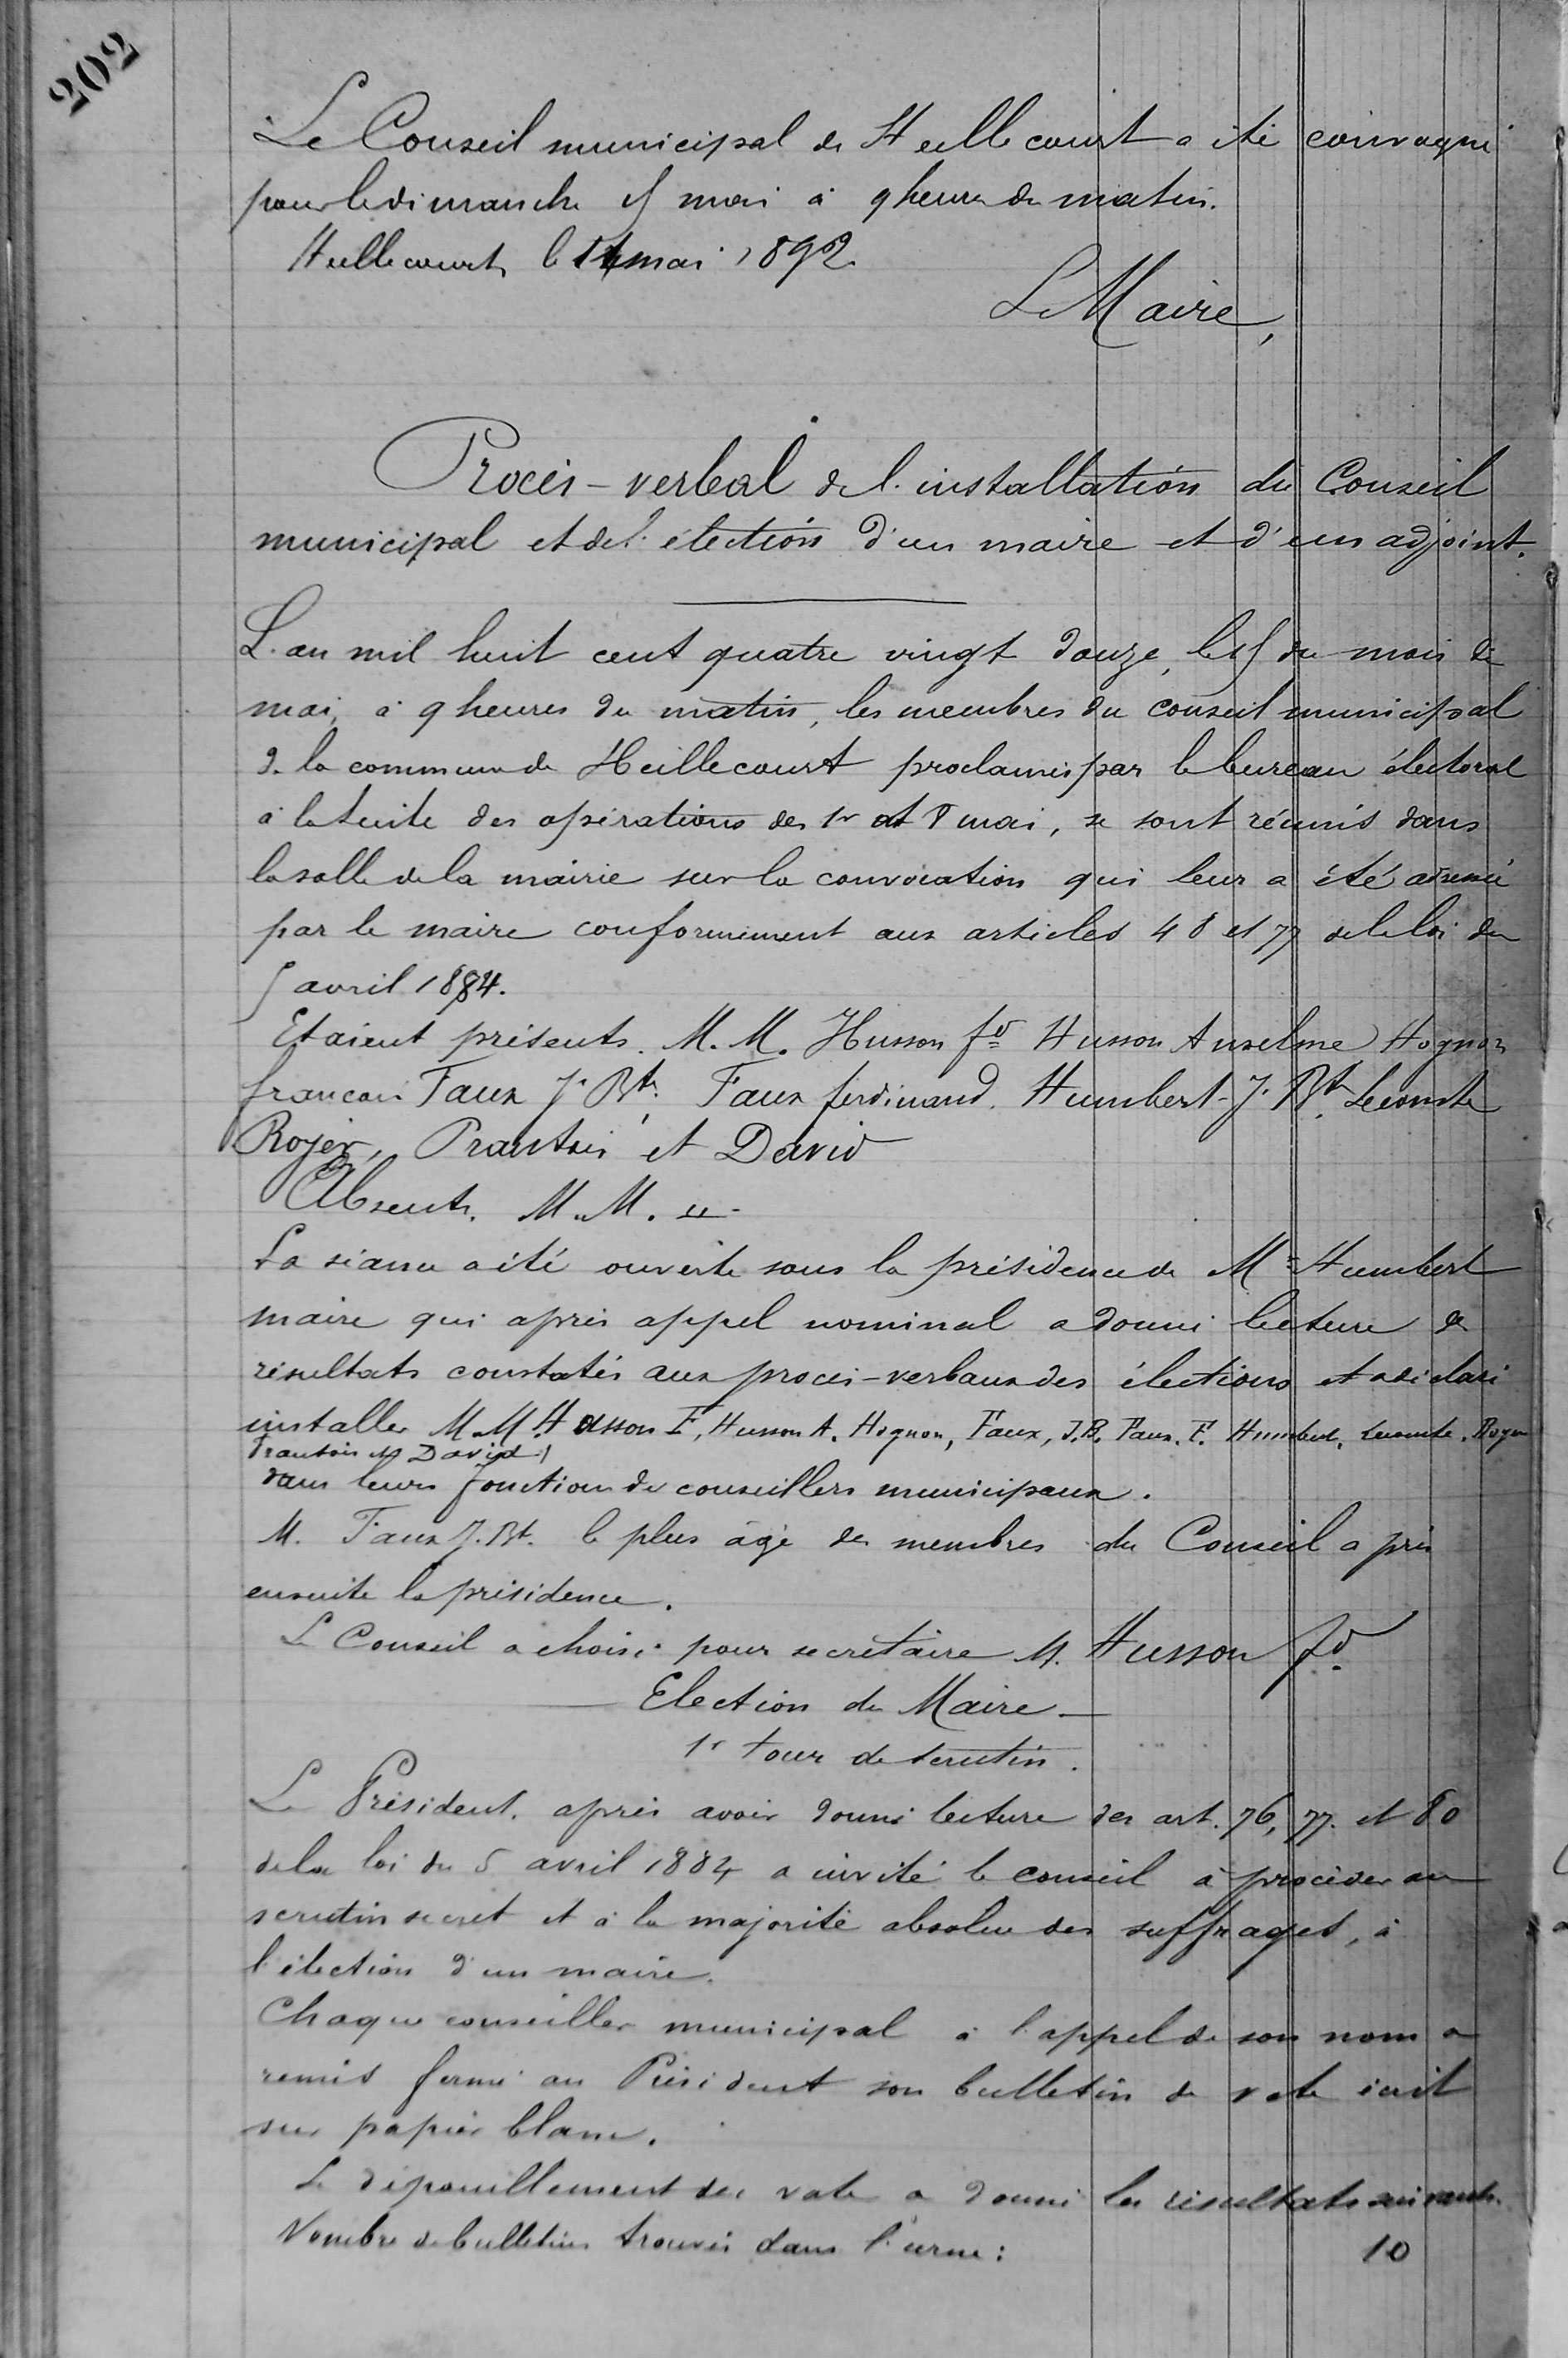 202
Le Conseil municipal de Heillecourt a été convoqué
pour le dimanche 15 mai à 9 heures du matin.
Heillecourt, le 11 mai 1892
Le Maire,
Procès-verbal de l'installation du Conseil
municipal et de l'élection d'un maire et d'un adjoint.
L'an mil huit cent quatre vingt douze, le 15 du mois de
mai, à 9 heures du matin, les membres du conseil municipal
de la commune de Heillecourt proclamés par le bureau électoral
à la suite des opérations des 1er et 8 mai, se sont réunis dans
la salle de la mairie sur la convocation qui leur a été adressée
par le maire conformément aux articles 48 et 77 de la loi du
5 avril 1884.
Etaient présents. M. M. Husson fd Husson Anselme, Hognon
françois Faux J. Bte, Faux ferdinand, Humbert J. Bte Lecomte
Royer, Prantois et David
Absents. M. M. "
La séance a été ouverte sous la présidence de Mr Humbert
maire qui après appel nominal a donné lecture des
résultats constatés aux procès-verbaux des élections et a déclaré
installer M. M. Husson F, Husson A. Hognon, Faux, J. B. Faux. F. Humbert, Lecomte, Royer
Prantois et David
dans leurs fonctions de conseillers municipaux.
M. Faux J. Bt. le plus âgé des membres du Conseil a pris
ensuite la présidence.
Le Conseil a choisi pour secrétaire M. Husson fd.
Election du Maire
1r tour de scrutin.
Le Président, après avoir donné lecture des art. 76, 77. et 80
de la loi du 5 avril 1884 a invité le conseil à procéder au
scrutin secret et à la majorité absolue des suffrages, à
l'élection d'un maire.
Chaque conseiller municipal à l'appel de son nom a
remis fermé au Président son bulletin de vote écrit
sur papier blanc.
Le dépouillement des vote a donné les résultats suivants.
Nombre de bulletins trouvés dans l'urne: 10